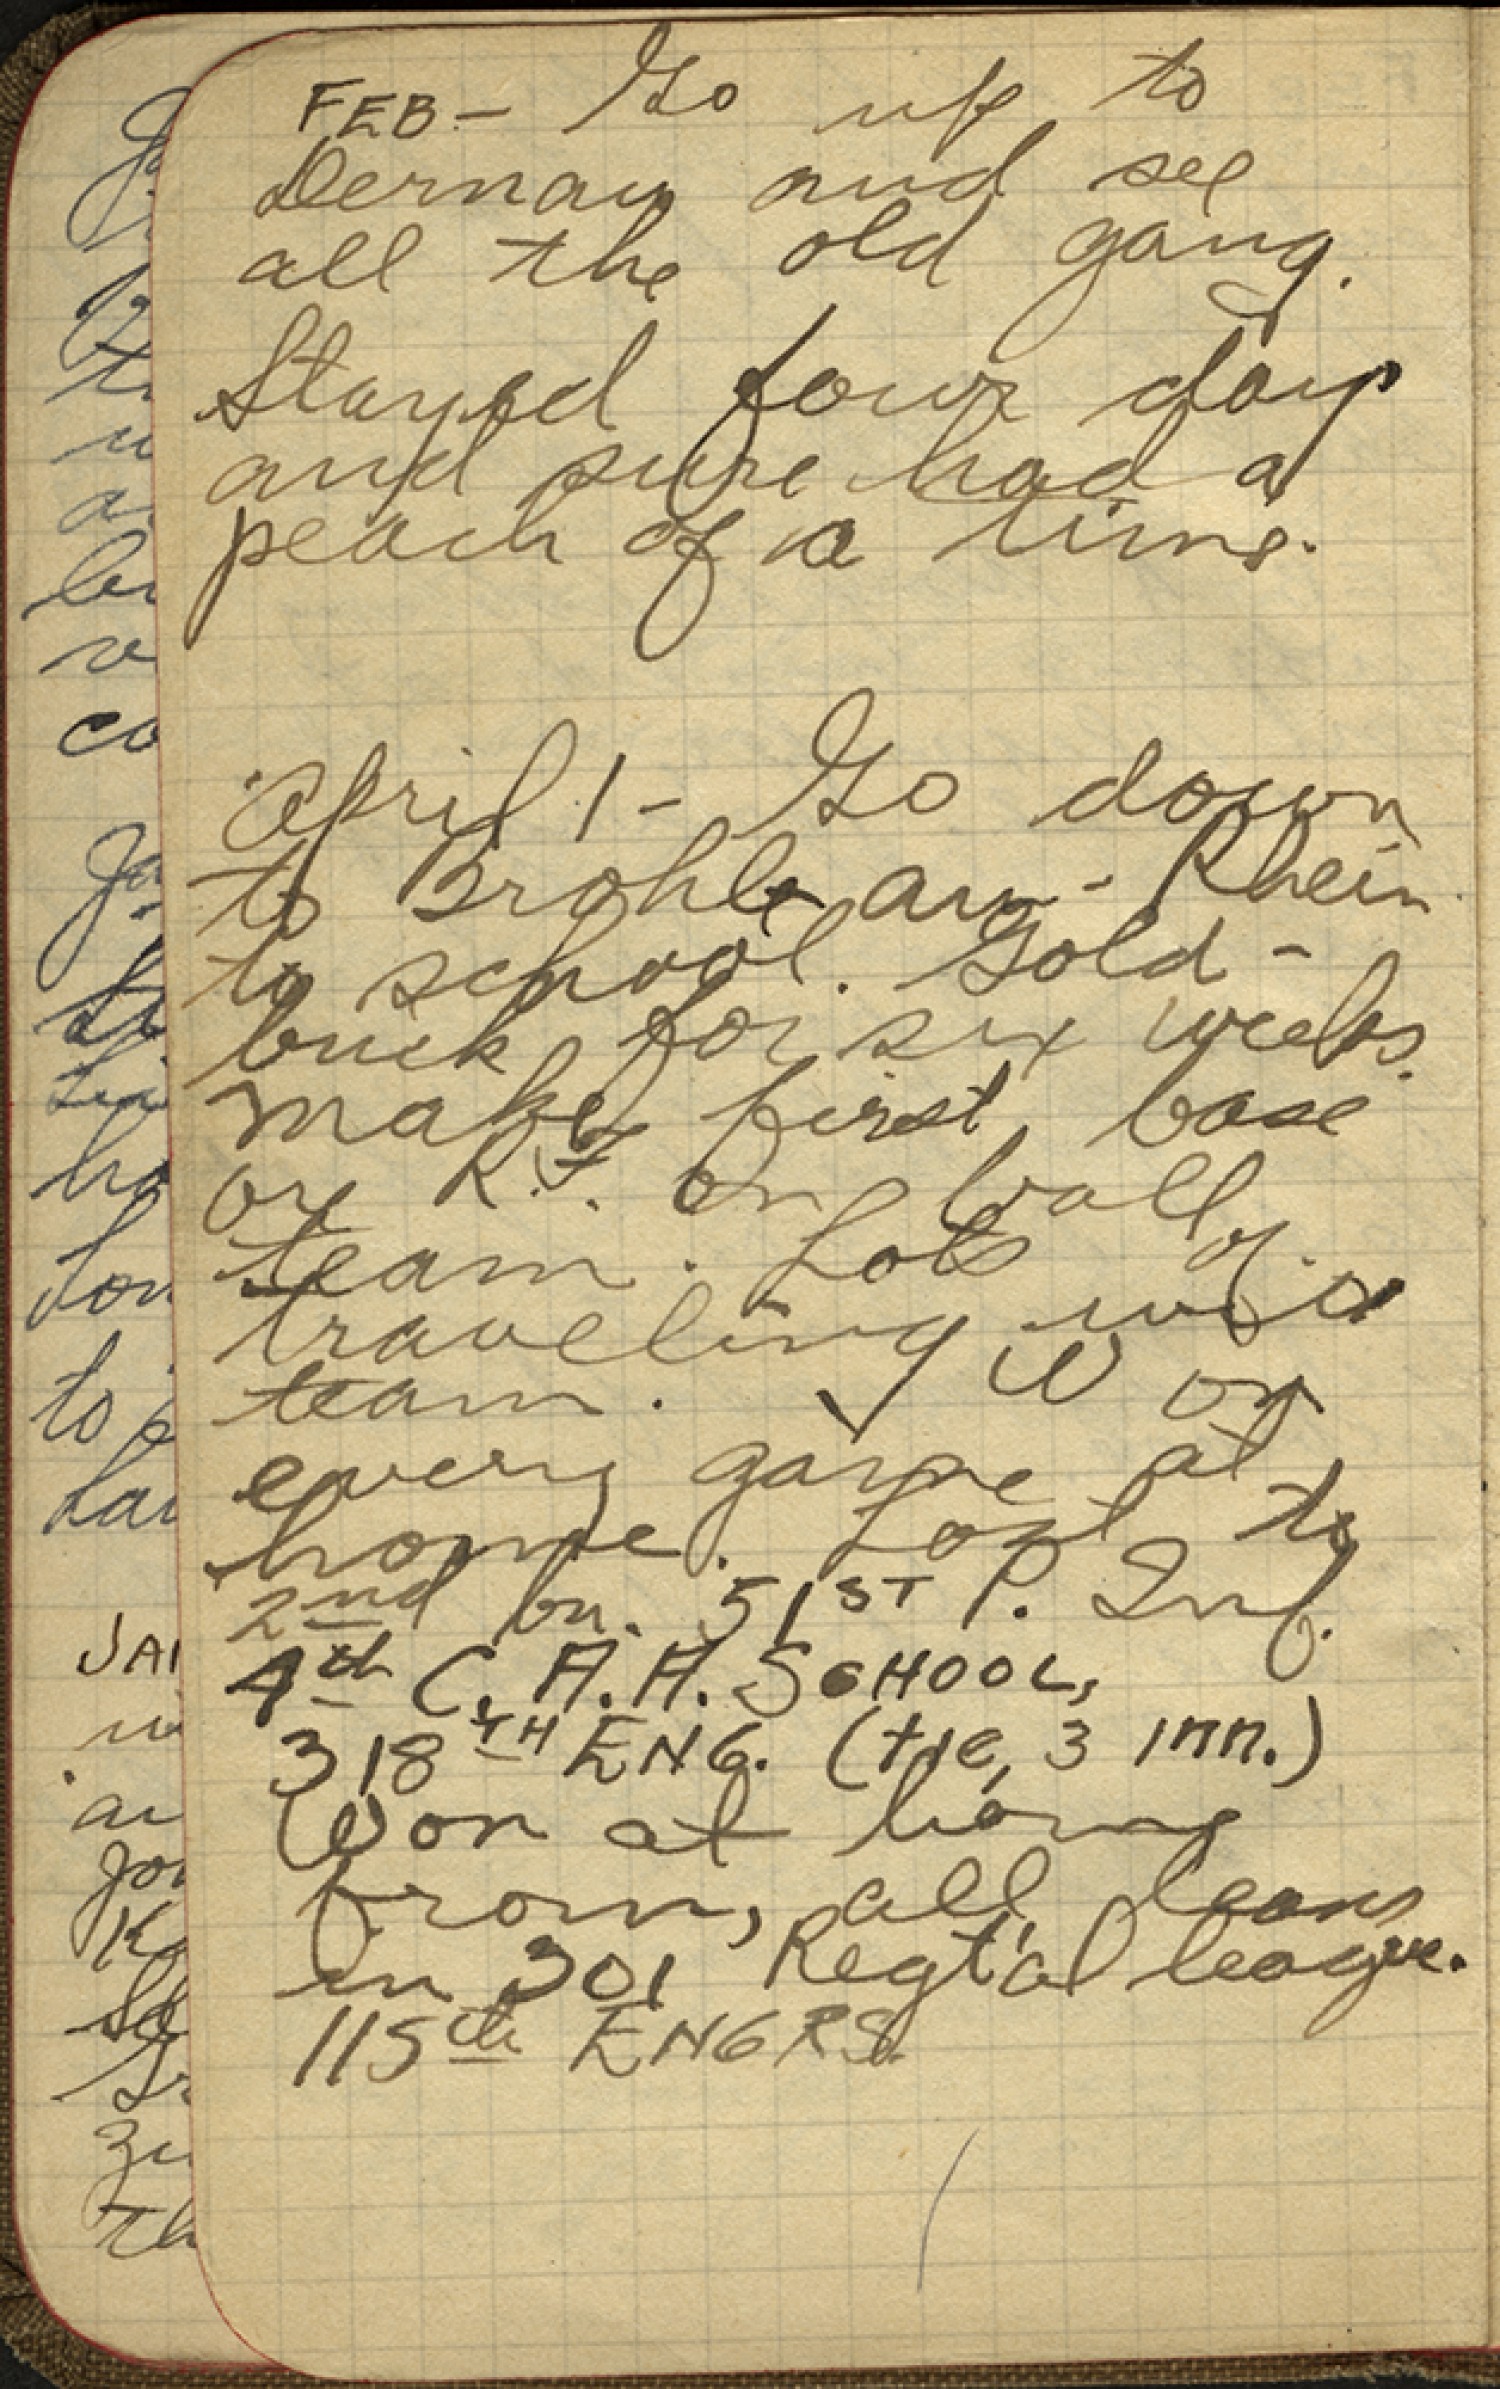 FEB - Go up to
Dernau and see
all the old gang.
Stayed four days
and sure had a
peach of a time.
April 1 - Go down
to Brohl am - Rhein
to school. Gold -
brick for six weeks.
Make first base
or R.F. on ball
team. Lots of
traveling with
team. Won
every game at
home. Lost to
2nd bn. 51ST P. Inf.
4th C. A. A. SCHOOL,
318TH ENG. (tie, 3 inn.)
Won at home
from, all teams
in 301 Regt'al league.
115th ENGRS.
Ja
co
Ja
ho
to
JAN